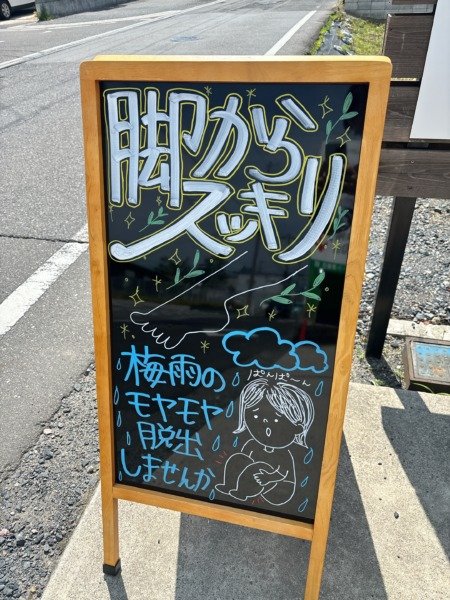 脚から
スッキリ
ぱんぱ〜ん
梅雨の
モヤモヤ
脱出
しませんか